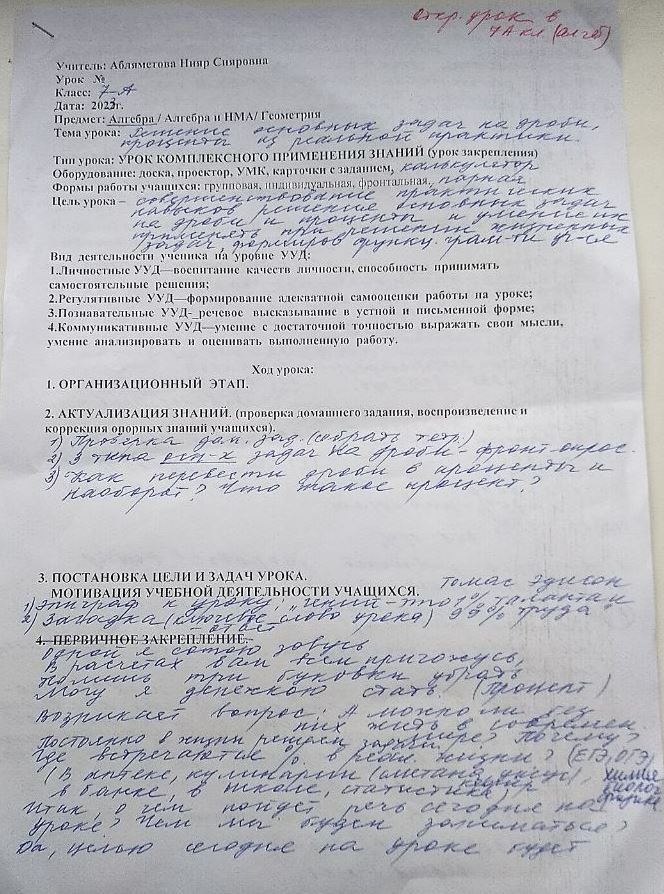 Откр. урок в
7А кл (алгеб)
Учитель: Аблямётова Нияр Сияровна
Урок №
Класс: 7-А
Дата: 2023г.
Предмет: Алгебра / Алгебра и НМА/ Геометрия
Тема урока: Решение основных задач на дроби,
проценты из реальной практики.
Тип урока: УРОК КОМПЛЕКСНОГО ПРИМЕНЕНИЯ ЗНАНИЙ (урок закрепления)
Оборудование: доска, проектор, УМК, карточки с заданием, калькулятор
Формы работы учащихся: групповая, индивидуальная, фронтальная, парная
Цель урока – совершенствование практических
навыков решение основных задач
на дроби и проценты и умение их
применять при решении жизненных
задач, формиров функц. грам-ти уч-ся
Вид деятельности ученика на уровне УУД:
1.Личностные УУД—воспитание качеств личности, способность принимать
самостоятельные решения;
2.Регулятивные УУД—формирование адекватной самооценки работы на уроке;
3.Познавательные УУД-_речевое высказывание в устной и письменной форме;
4.Коммуникативные УУД—умение с достаточной точностью выражать свои мысли,
умение анализировать и оценивать выполненную работу.
Ход урока:
1. ОРГАНИЗАЦИОННЫЙ ЭТАП.
2. АКТУАЛИЗАЦИЯ ЗНАНИЙ. (проверка домашнего задания, воспроизведение и
коррекция опорных знаний учащихся).
1) Проверка дом. зад. (собрать тетр.)
2) 3 типа осн-х задач на дроби - фронт. опрос.
3) Как перевести дроби в проценты и
наоборот? Что такое процент?
3. ПОСТАНОВКА ЦЕЛИ И ЗАДАЧ УРОКА.
МОТИВАЦИЯ УЧЕБНОЙ ДЕЯТЕЛЬНОСТИ УЧАЩИХСЯ. Томас Эдисон
1) Эпиграф к уроку: „Гений – это 1% таланта и
2) Загадка (ключевое слово урока) 99% труда"
4. ПЕРВИЧНОЕ ЗАКРЕПЛЕНИЕ.
Одной я сотою зовусь
В расчётах вам всем пригожусь,
три буковки убрать
Могу я денежкою стать. (процент)
Возникает вопрос: А можно ли без
них жить в современ.
Постоянно в жизни решаем задачи мире? Почему?
Где встречаются % в реал. жизни? (ЕГЭ, ОГЭ)
(В аптеке, кулинарии (сметана, уксус), химия
в банке, в школе, статистика, биолог
физика
Итак о чём пойдет речь сегодня на
уроке? Чем мы будем заниматься?
Да, целью сегодня на уроке будет